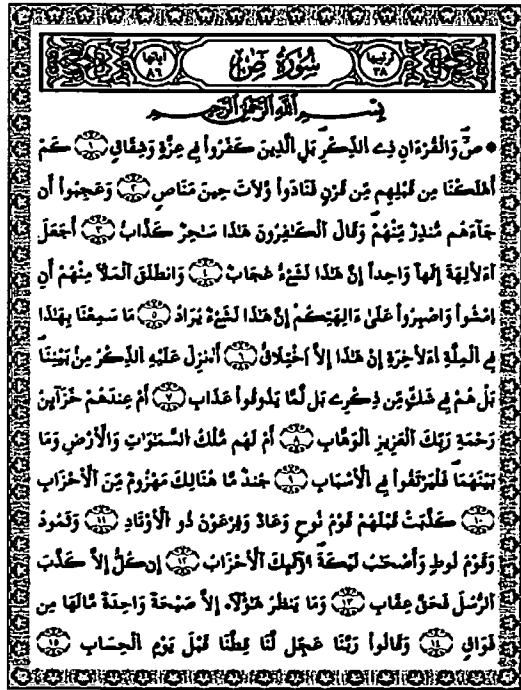 ترتيبها ٣٨ سُورَةُ صٓ آياتها ٨٦
بِسْمِ اِللَّهِ اِلرَّحْمَٰنِ اِلرَّحِيمِ
صٓ وَالْقُرْءَانِ ذِے اِلذِّكْرِ بَلِ اِلَّذِينَ كَفَرُواْ فِے عِزَّةٍ وَشِقَاقٍ ١ كَمْ
أَهْلَكْنَا مِن قَبْلِهِم مِّن قَرْنٍ فَنَادَواْ وَّلَاتَ حِينَ مَنَاصٍ ٢ وَعَجِبُواْ أَن
جَآءَهُم مُّنذِرٌ مِّنْهُمْ وَقَالَ اَلْكَٰفِرُونَ هَٰذَا سَٰحِرٌ كَذَّابٌ ٣ أَجَعَلَ
اَ۬لَالِهَةَ إِلَٰهاً وَٰحِداً إِنَّ هَٰذَا لَشَےْءٌ عُجَابٌ ٤ وَانطَلَقَ اَلْمَلَأُ مِنْهُمُ أَنِ
اِمْشُواْ وَاصْبِرُواْ عَلَىٰٓ ءَالِهَتِكُمُ إِنَّ هَٰذَا لَشَےْءٌ يُرَادُ ٥ مَا سَمِعْنَا بِهَٰذَا
فِے اِلْمِلَّةِ اِ۬لَاخِرَةِ إِنْ هَٰذَا إِلَّا اَخْتِلَٰقٌ ٦ أَ۟نزِلَ عَلَيْهِ اِلذِّكْرُ مِنۢ بَيْنِنَا
بَلْ هُمْ فِے شَكٍّ مِّن ذِكْرِے بَل لَّمَّا يَذُوقُواْ عَذَابِ ٧ أَمْ عِندَهُمْ خَزَآئِنُ
رَحْمَةِ رَبِّكَ اَلْعَزِيزِ اِلْوَهَّابِ ٨ أَمْ لَهُم مُّلْكُ اُلسَّمَٰوَٰتِ وَالْأَرْضِ وَمَا
بَيْنَهُمَا فَلْيَرْتَقُواْ فِے اِلْأَسْبَٰبِ ٩ جُندٌ مَّا هُنَالِكَ مَهْزُومٌ مِّنَ اَلْأَحْزَابِ
١٠ كَذَّبَتْ قَبْلَهُمْ قَوْمُ نُوحٍ وَعَادٌ وَفِرْعَوْنُ ذُو اُلْأَوْتَادِ ١١ وَثَمُودُ
وَقَوْمُ لُوطٍ وَأَصْحَٰبُ لَيْكَةَ أُوْلَٰئِكَ اَلْأَحْزَابُ ١٢ إِن كُلٌّ إِلَّا كَذَّبَ
اَلرُّسُلَ فَحَقَّ عِقَابِ ١٣ وَمَا يَنظُرُ هَٰٓؤُلَآءِ اِلَّا صَيْحَةً وَٰحِدَةً مَّا لَهَا مِن
فَوَاقٍ ١٤ وَقَالُواْ رَبَّنَا عَجِّل لَّنَا قِطَّنَا قَبْلَ يَوْمِ اِلْحِسَابِ ١٥